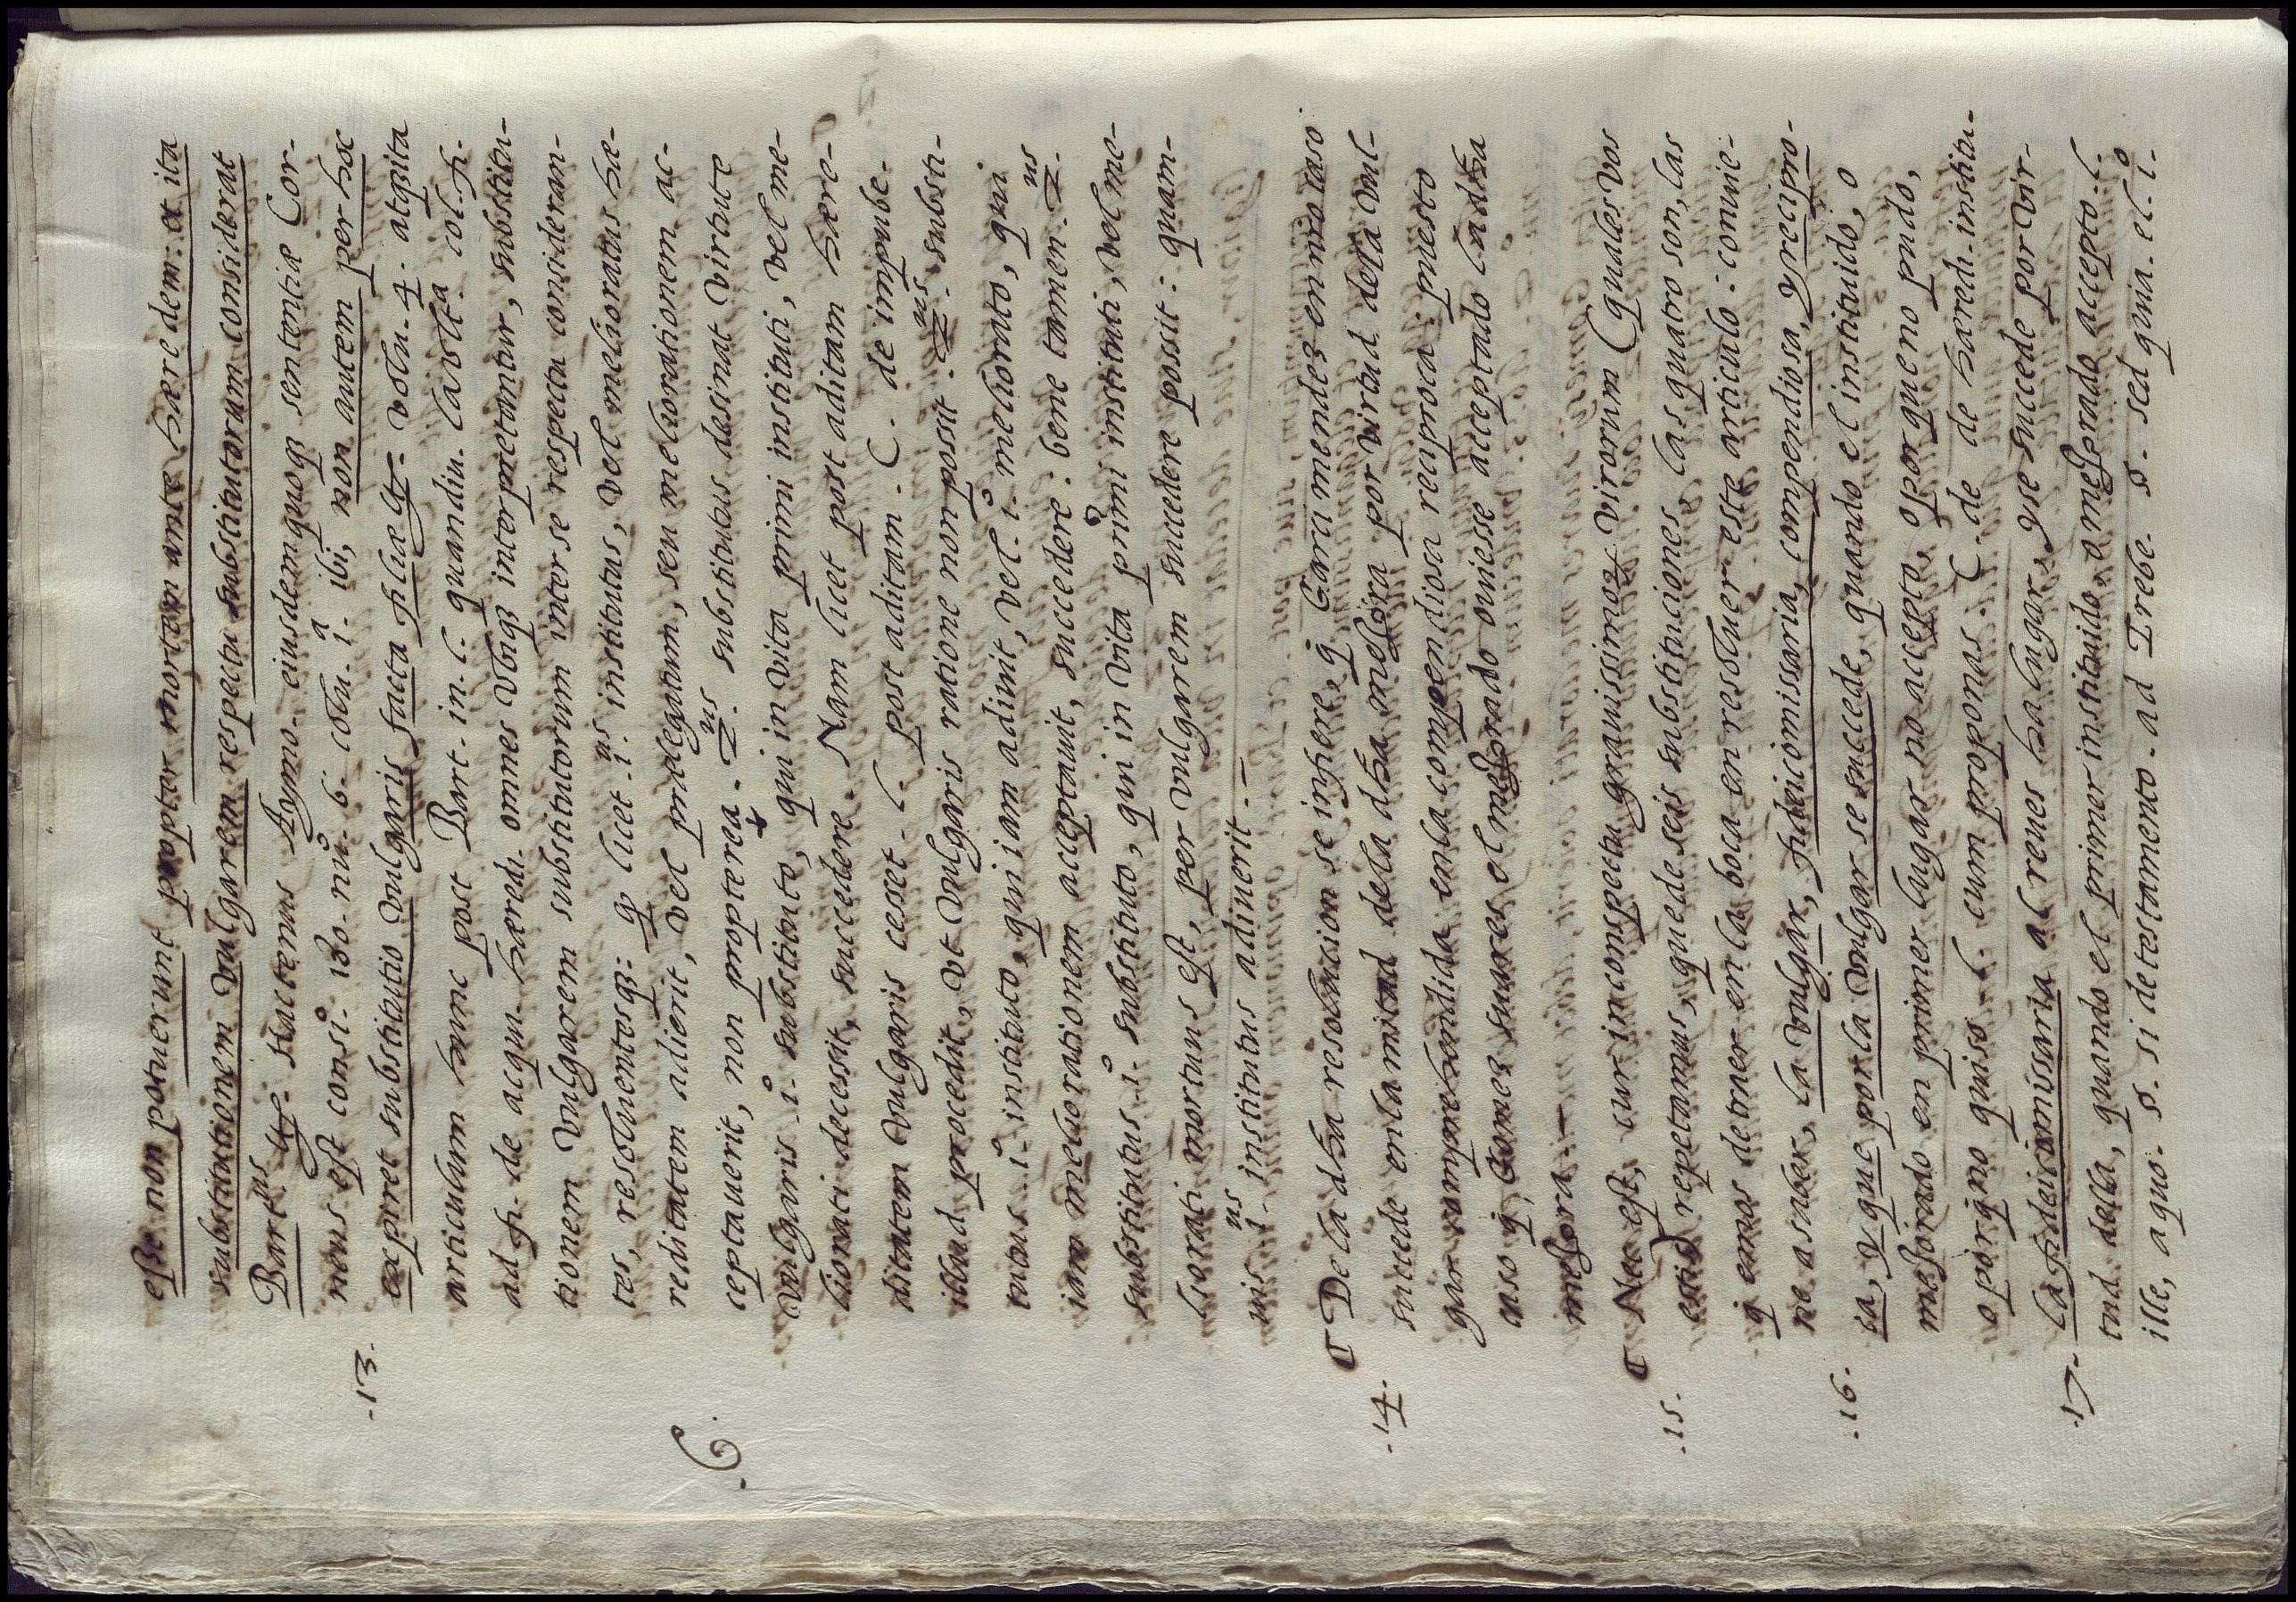 esse non potuerunt propter mortem ante hæredem. et ita
substitutionem vulgarem respectu substitutorum considerat
Bart.us etc. hactenus Aymo. eiusdem quoq3 sententiæ Cor-
neus est consi. 180. nu.o 6. colu. 1.a ibi, non autem per hoc
.13. expiret substitutio vulgaris facta filiæ etc. volu. 4. atq3 ita
articulum hunc post Bart. in. l. quandiu. la vlt.a col. ff.
ad ff. de acqu. hæredi. omnes vbiq3 interpretantur, substitu-
tionem vulgarem substitutorum inter se respectu consideran-
tes, resoluentesq3: q, licet .1.us institutus, vel melioratus hæ-
reditatem adierit, vel prælegatum, seu meliorationem ac-
.6. ceptauerit, non propterea .2.us substitutus desinat virtute
vulgaris .1.o substituto, qui in vita primi instituti, vel me-
liorati decessit, succedere. Nam licet post aditam hære-
ditatem vulgaris cesset .l. post aditam. C. de impube.
illud procedit, vt vulgaris ratione non possit .2.us substi-
tutus .1.o instituto, qui iam adiuit, vel .1.o meliorato, qui
iam meliorationem acceptauit, succedere: bene tamen .2.us
substitutus .1.o substituto, qui in vita primi instituti, vel me-
liorati mortuus est, per vulgarem succedere possit: quam-
uis .1.us institutus adiuerit.–
.14. De la dha resolucion se infiere, q̃ Garcia mendez en nr̃o caso
succede en la mitad de la dha mejora por virtud de la vul-
gar comprehendida en la compendiosa reciproca: puesto
caso q̃, Gomez suarez el mejorado ouiesse acceptado la dha
mejora.–
.15. Nec est, cur in conspectu grauissimor. virorum (quales vos
estis) repetamus, que de seis substituciones, las quatro son, las
q̃ emos de traer en la boca en resoluer este articulo: conuie-
ne a saber, la vulgar, fideicomissaria, compendiosa, y recipro-
.16. ca, y que por la vulgar se succede, quando el instituido, o
mejorado en primer lugar no accepto, o porque no pudo,
o porq̃ no quiso .l. cum proponas. C. de hæredi. institu.
.17. la fideicomissaria al reues ha lugar, y se succede por vir-
tud della, quando el primer instituido, o mejorado accepto .l.
ille, a quo. §. si de testamento. ad Trebe. §. sed quia. el .1.o